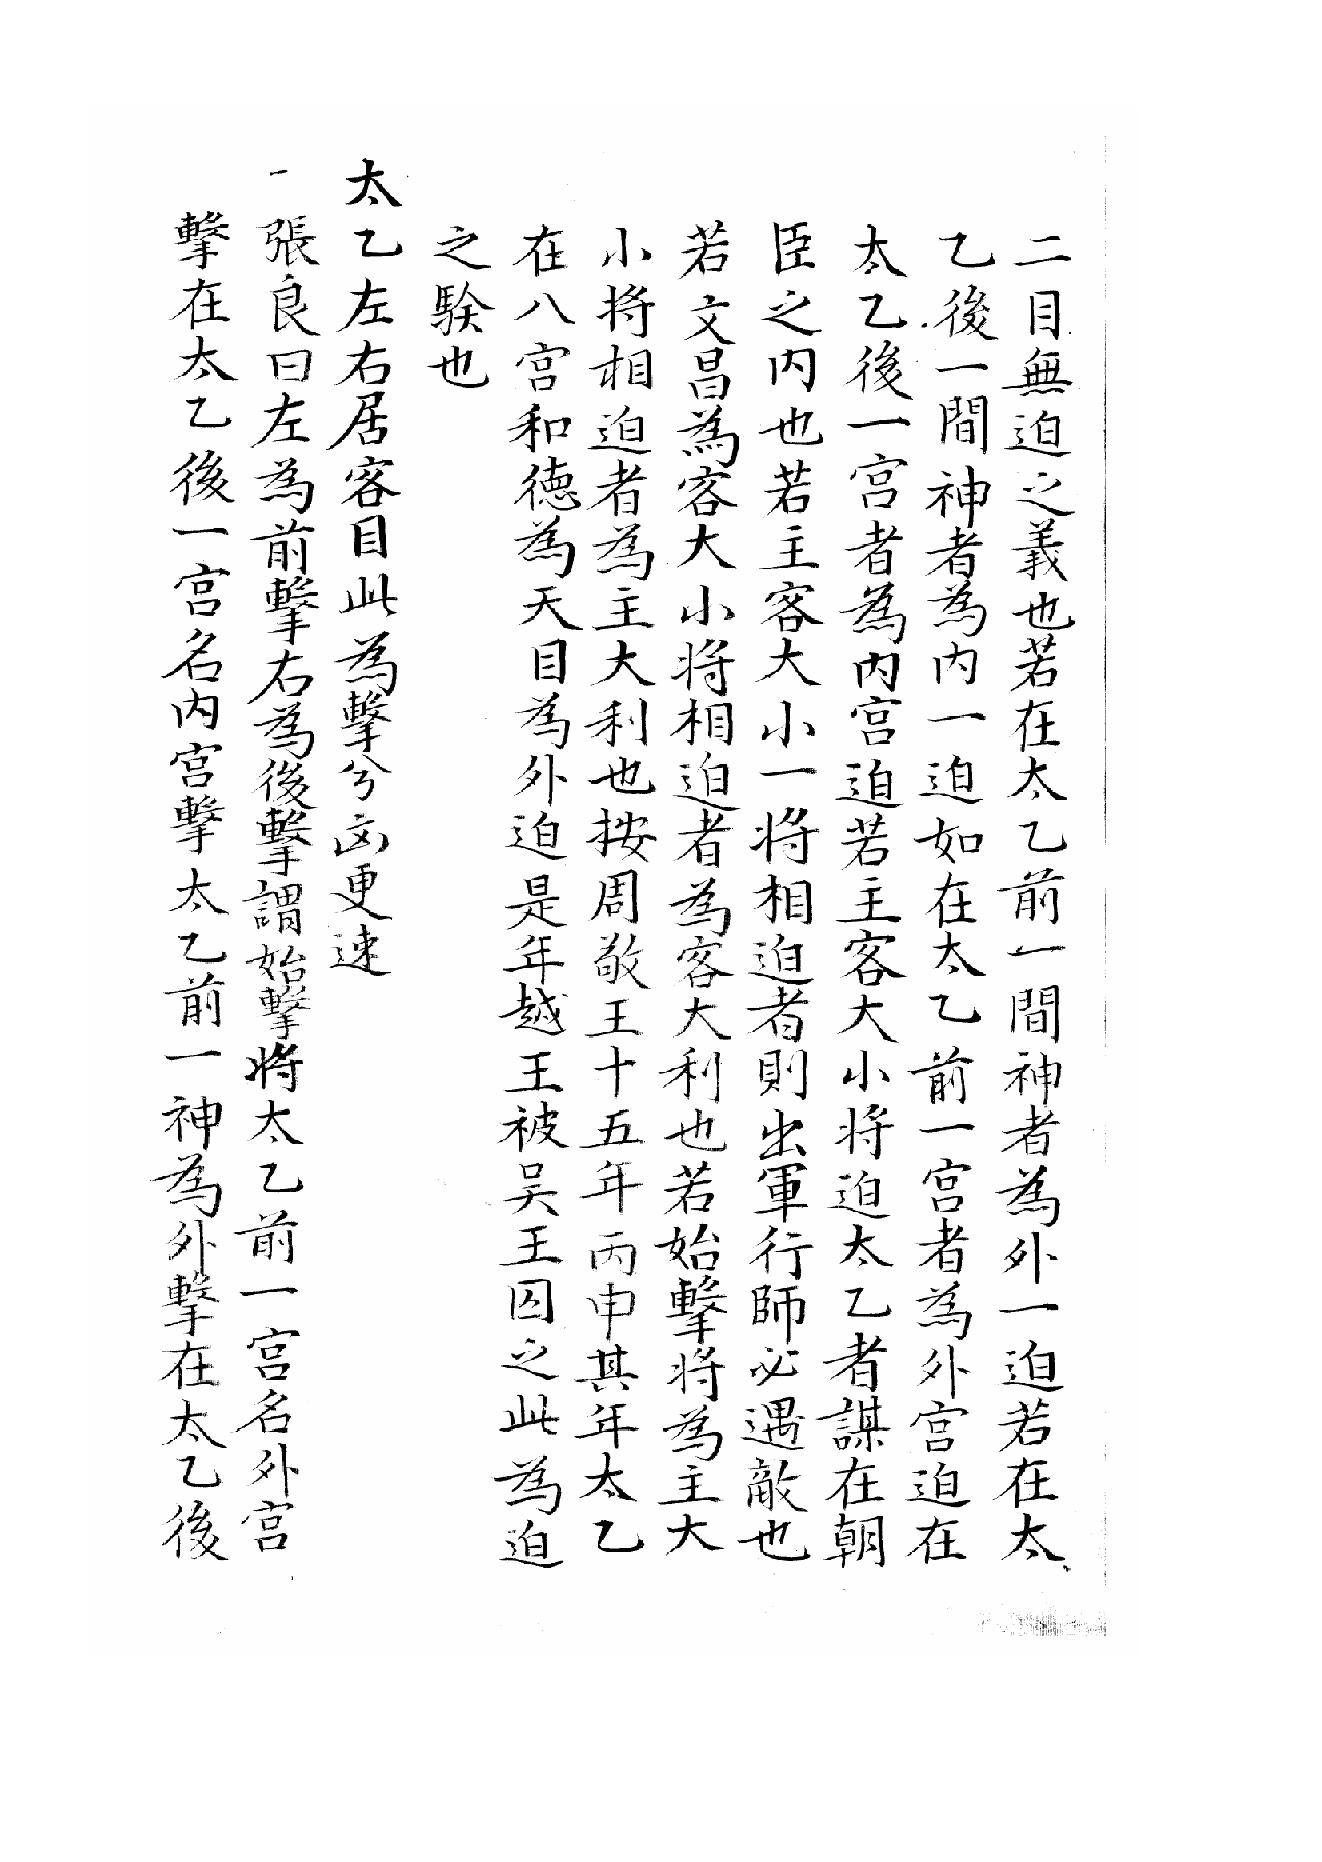 二目無迫之義也若在太乙前一間神者為外一迫若在太
乙後一間神者為内一迫如在太乙前一宫者為外宫迫在
太乙後一宫者為内宫迫若主客大小将迫太乙者謀在朝
臣之内也若主客大小一将相迫者則出軍行師必遇敵也
若文昌為客大小将相迫者為客大利也若始擊将為主大
小将相迫者為主大利也按周敬王十五年丙申其年太乙
在八宫和德為天目為外迫是年越王被吴王囚之此為迫
之験也
太乙左右居客目此為擊兮凶更速
一張良曰左為前擊右為後擊謂始擊将太乙前一宫名外宫
擊在太乙後一宫名内宫擊太乙前一神為外擊在太乙後